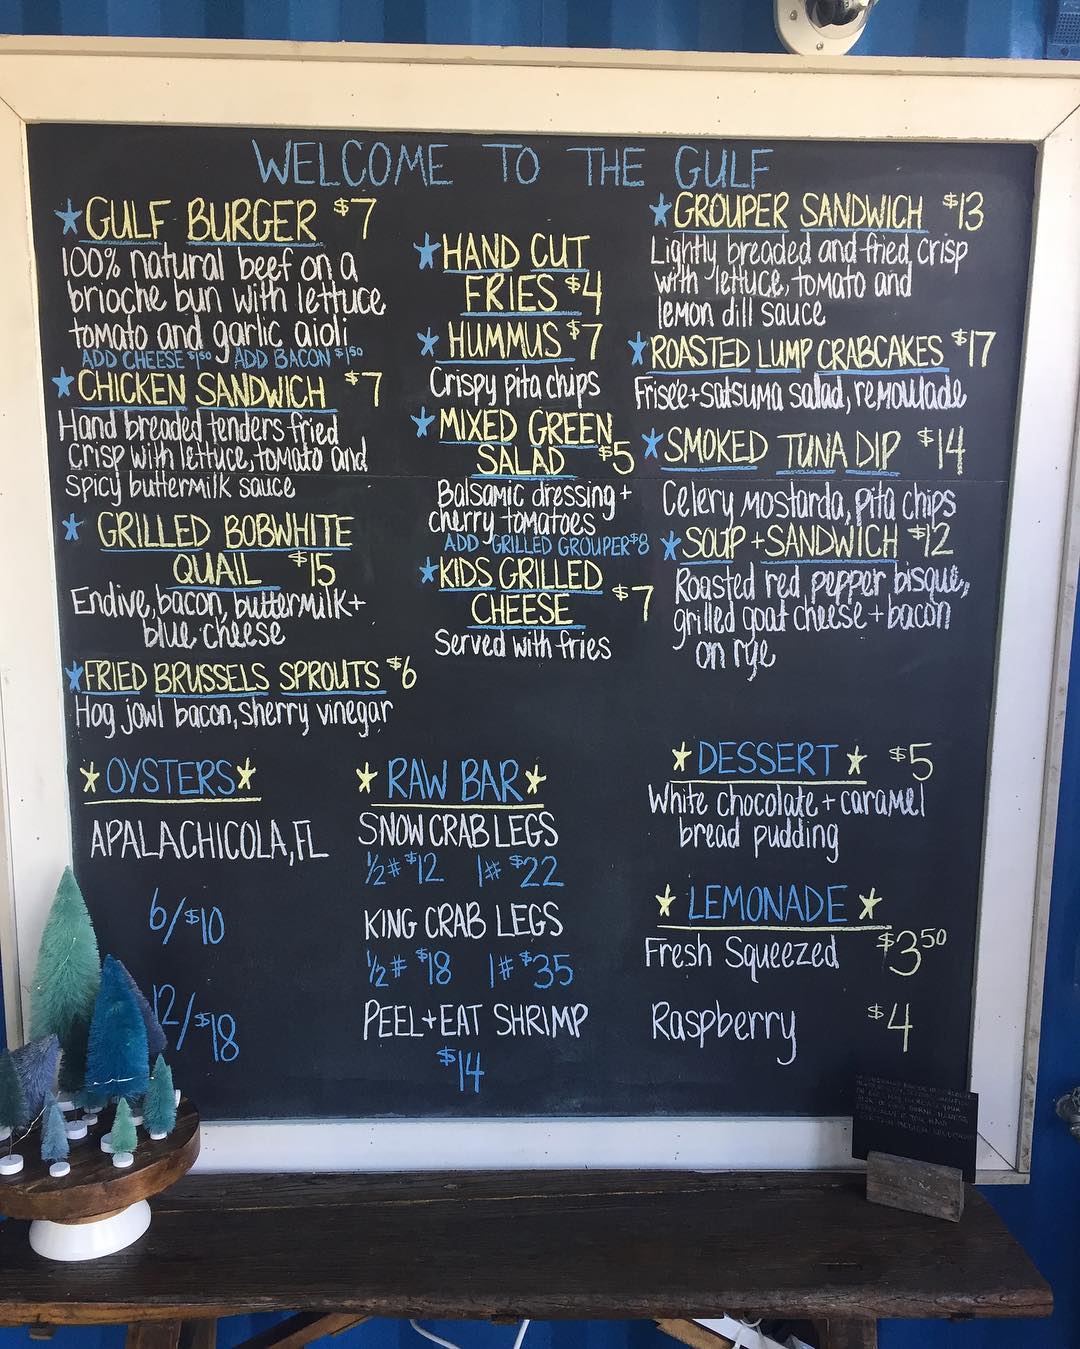 WELCOME TO THE GULF
GULF BURGER $7
100% natural beef on a
brioche bun with lettuce
tomato and garlic aioli
ADD CHEESE $1.50 ADD BACON $1.50
CHICKEN SANDWICH $7
Hand breaded tenders fried
crisp with lettuce, tomato and
spicy buttermilk sauce
GRILLED BOBWHITE
QUAIL $15
Endive, bacon, buttermilk +
blue cheese
FRIED BRUSSELS SPROUTS $6
Hog jowl bacon, sherry vinegar
HAND CUT
FRIES $4
HUMMUS $7
Crispy pita chips
MIXED GREEN
SALAD $5
Balsamic dressing +
cherry tomatoes
ADD GRILLED GROUPER $8
KIDS GRILLED
CHEESE $7
Served with fries
GROUPER SANDWICH $13
Lightly breaded and fried crisp
with lettuce, tomato and
lemon dill sauce
ROASTED LUMP CRABCAKES $17
Frisée + satsuma salad, remoulade
SMOKED TUNA DIP $14
Celery mostarda, pita chips
SOUP + SANDWICH $12
Roasted red pepper bisque,
grilled goat cheese + bacon
on rye
OYSTERS
APALACHICOLA, FL
6/$10
12/$18
RAW BAR
SNOW CRAB LEGS
1/2# $12 1# $22
KING CRAB LEGS
1/2# $18 1# $35
PEEL + EAT SHRIMP
$14
DESSERT $5
White chocolate + caramel
bread pudding
LEMONADE
Fresh Squeezed $3.50
Raspberry $4